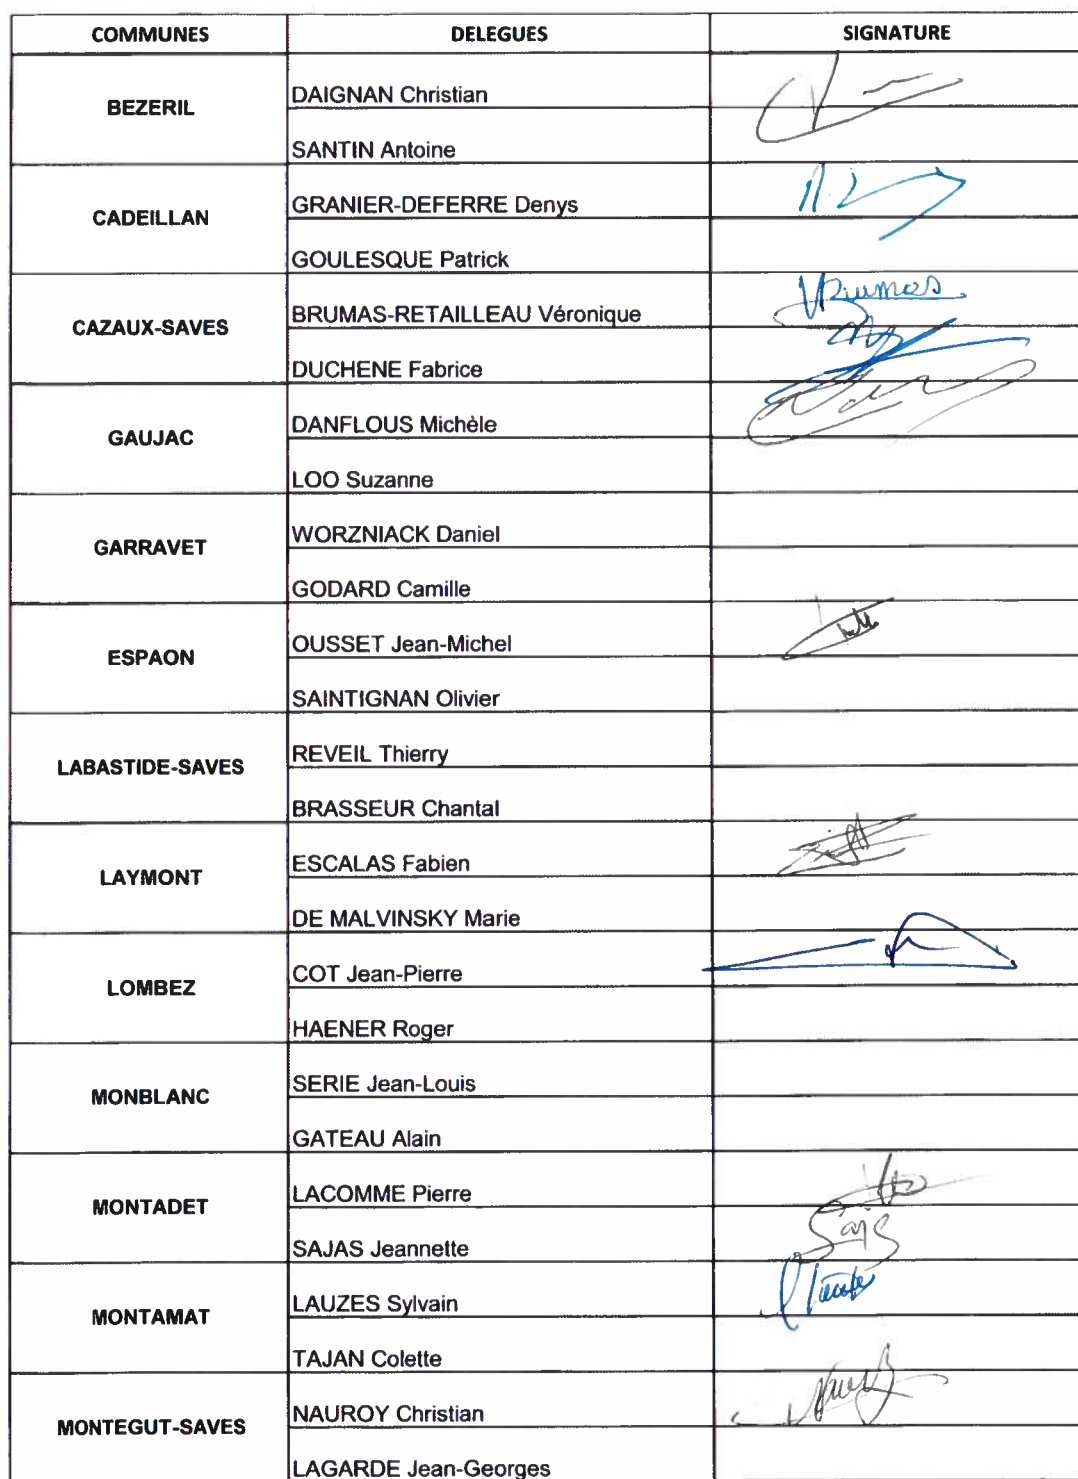 COMMUNES DELEGUES SIGNATURE
BEZERIL
DAIGNAN Christian
SANTIN Antoine
CADEILLAN
GRANIER-DEFERRE Denys
GOULESQUE Patrick
CAZAUX-SAVES
BRUMAS-RETAILLEAU Véronique VBrumas
DUCHENE Fabrice
GAUJAC
DANFLOUS Michèle
LOO Suzanne
GARRAVET
WORZNIACK Daniel
GODARD Camille
ESPAON
OUSSET Jean-Michel
SAINTIGNAN Olivier
LABASTIDE-SAVES
REVEIL Thierry
BRASSEUR Chantal
LAYMONT
ESCALAS Fabien
DE MALVINSKY Marie
LOMBEZ
COT Jean-Pierre
HAENER Roger
MONBLANC
SERIE Jean-Louis
GATEAU Alain
MONTADET
LACOMME Pierre
SAJAS Jeannette
MONTAMAT
LAUZES Sylvain
TAJAN Colette
MONTEGUT-SAVES
NAUROY Christian
LAGARDE Jean-Georges